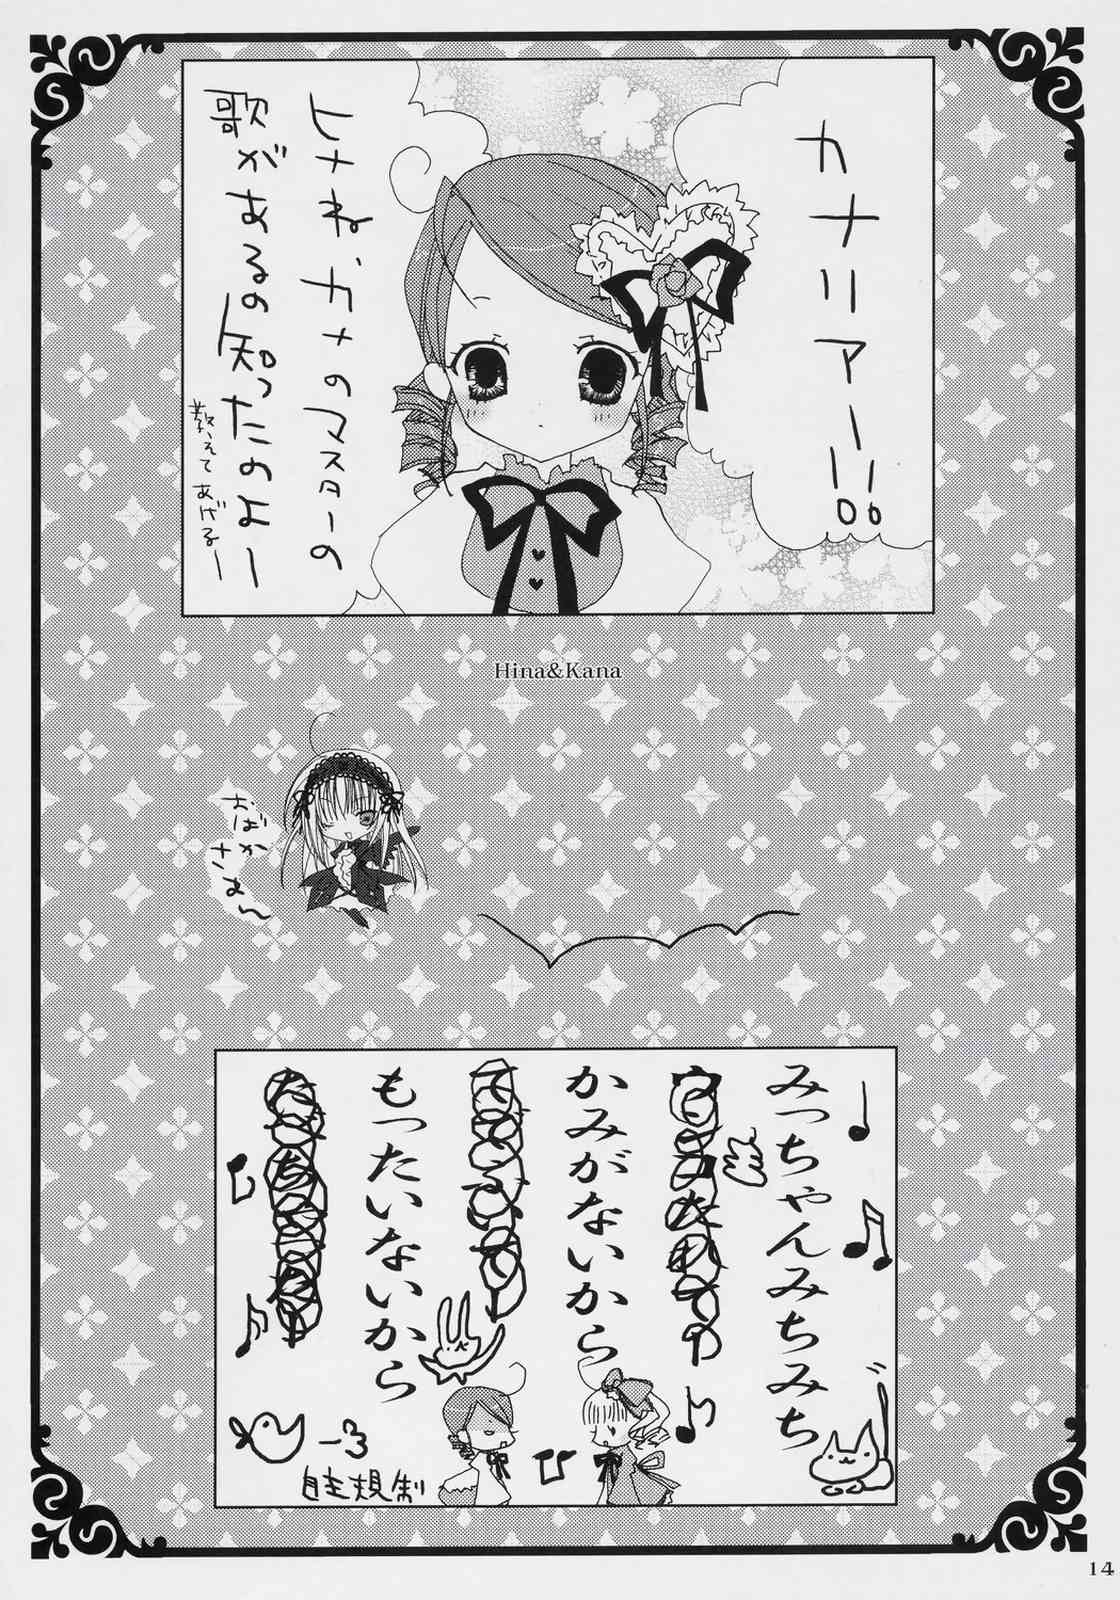 カナリアー!!
ヒナね、カナのマスターの
歌があるの知ったのよー
教えてあげるー
Hina&Kana
おばか
さぁん
みっちゃんみちみち
かみがないから
もったいないから
自主規制
14